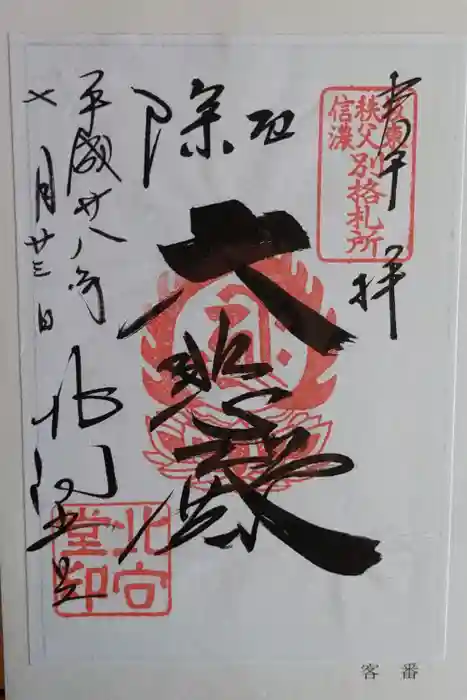 奉拝
坂東
秩父
信濃
別格札所
厄除
大悲殿
平成廿八年
七月廿三日
北向堂
北向
堂印
番
客